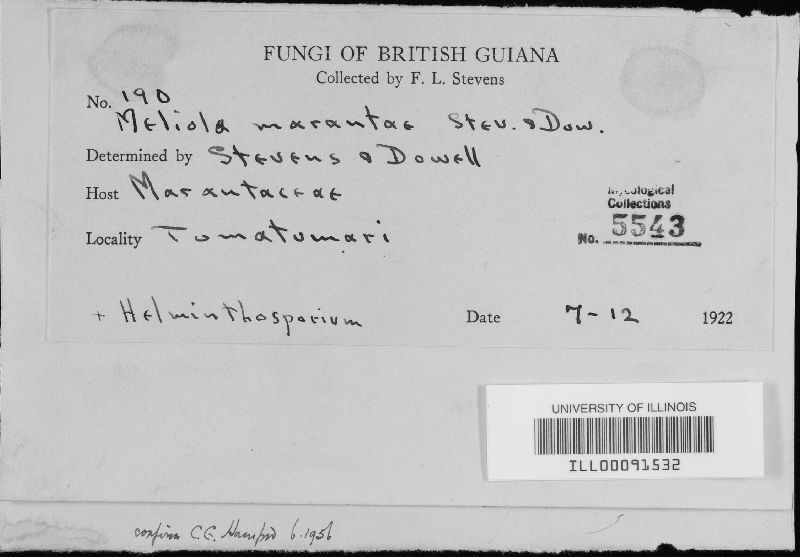 FUNGI OF BRITISH GUIANA
Collected by F. L. Stevens
No. 190
Meliola marantae Stev. & Dow.
Determined by Stevens & Dowell
Host Marantaceae
Mycological
Collections
No. 5543
Locality Tumatumari
+ Helminthosporium Date 7-12 1922
UNIVERSITY OF ILLINOIS
ILL00091532
confirm C.G. 6.1956